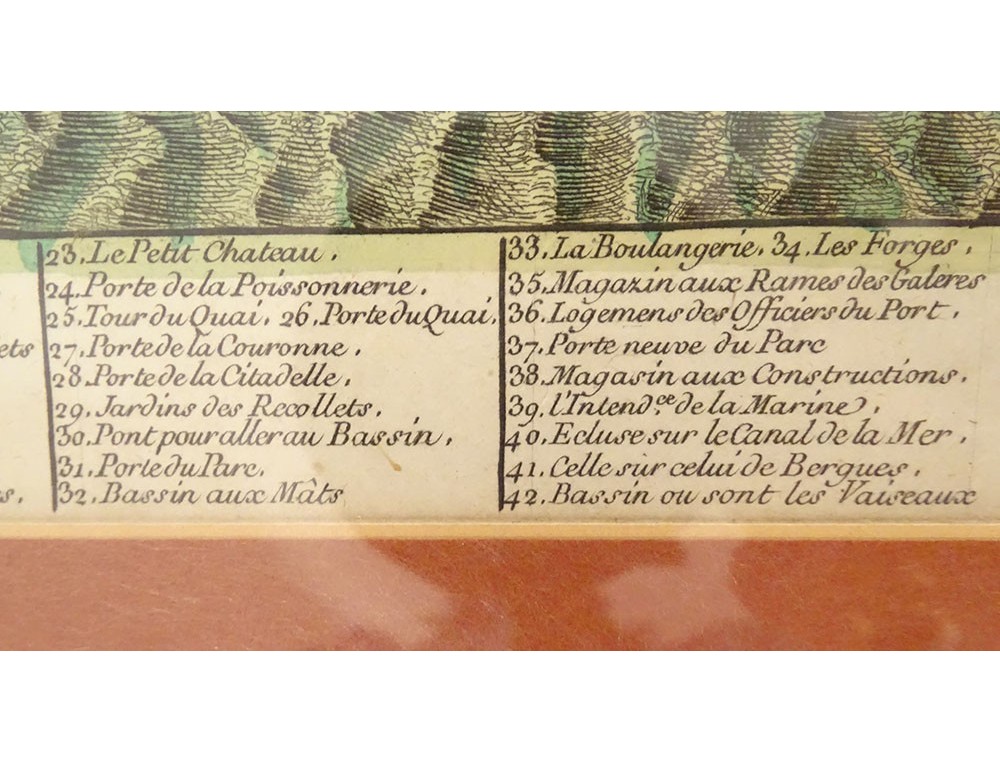 ets
s.
23. Le Petit Chateau.
24. Porte de la Poissonnerie.
25. Tour du Quai. 26. Porte du Quai.
27. Porte de la Couronne.
28. Porte de la Citadelle.
29. Jardins des Recollets.
30. Pont pour aller au Bassin.
31. Porte du Parc.
32. Bassin aux Mâts
33. La Boulangerie. 34. Les Forges.
35. Magazin aux Rames des Galeres
36. Logemens des Officiers du Port.
37. Porte neuve du Parc
38. Magasin aux Constructions.
39. l'Intend.ce de la Marine.
40. Ecluse sur le Canal de la Mer.
41. Celle sur celui de Bergues.
42. Bassin ou sont les Vaiseaux